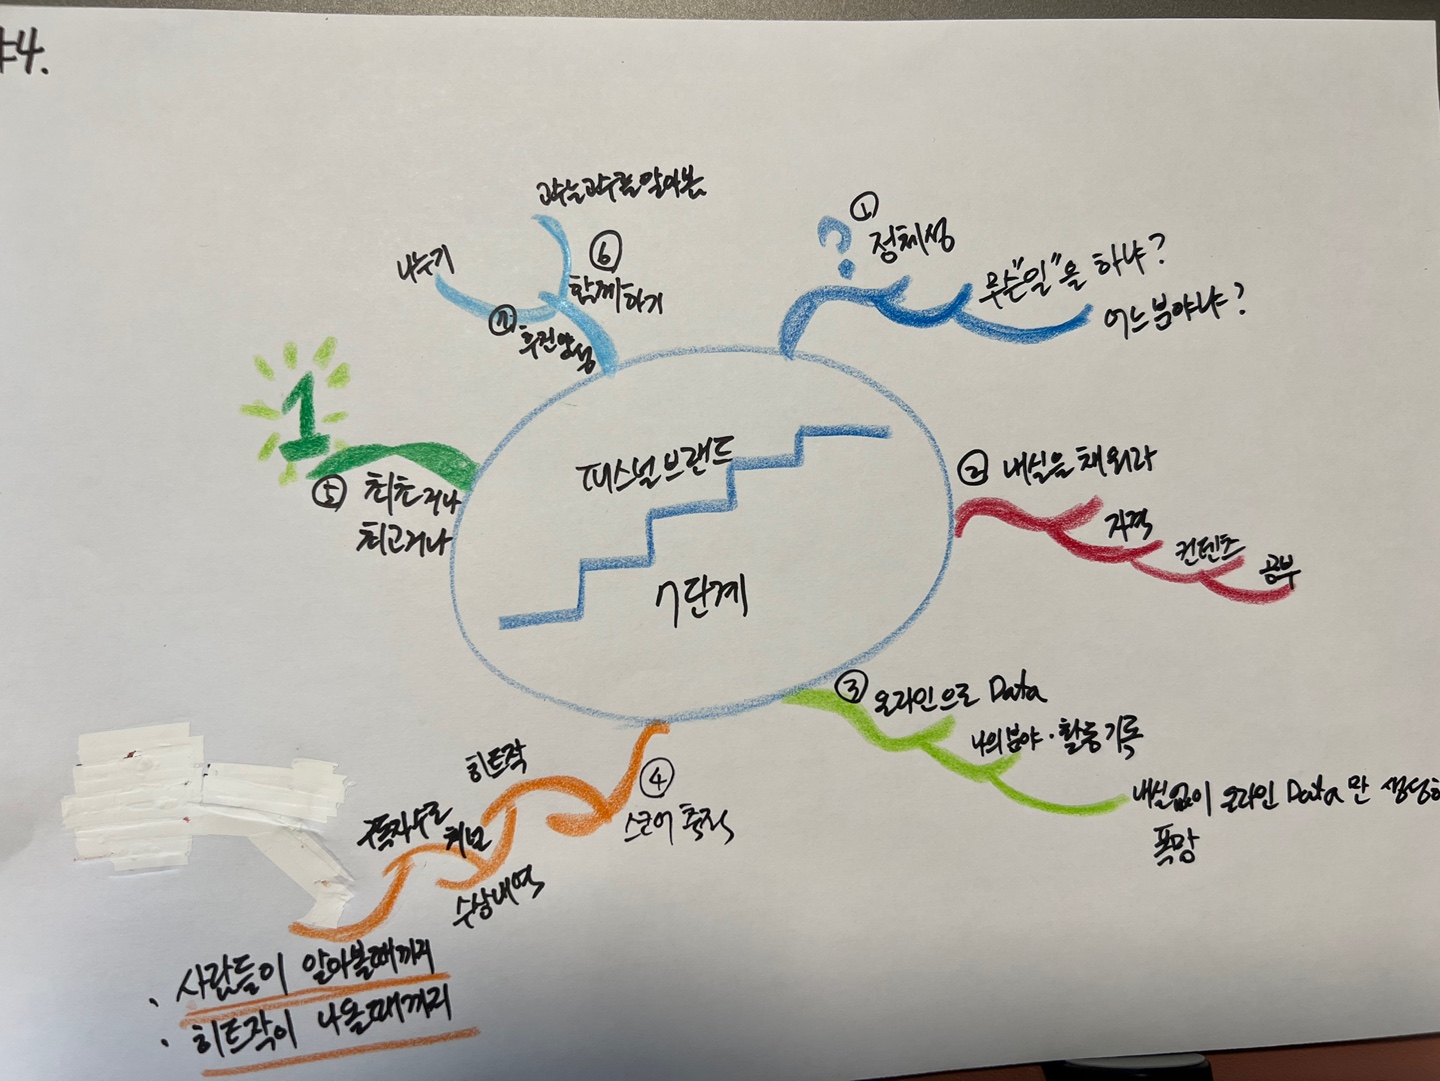 #4.
퍼스널브랜드
7단계
① 정체성
무슨"일"을 하냐?
어느분야냐?
② 내실을 채워라
자격
컨텐츠
공부
③ 온라인으로 Data
나의분야·활동기록
내실없이 온라인 Data 만 생성하
폭망
④ 스코어 축적
히트작
수상내역
구독자수로
채널
· 사람들이 알아볼때까지
· 히트작이 나올때까지
⑤ 최초거나
최고거나
1
⑥ 함께하기
고수는고수를알아봄
⑦ 후진양성
나누기